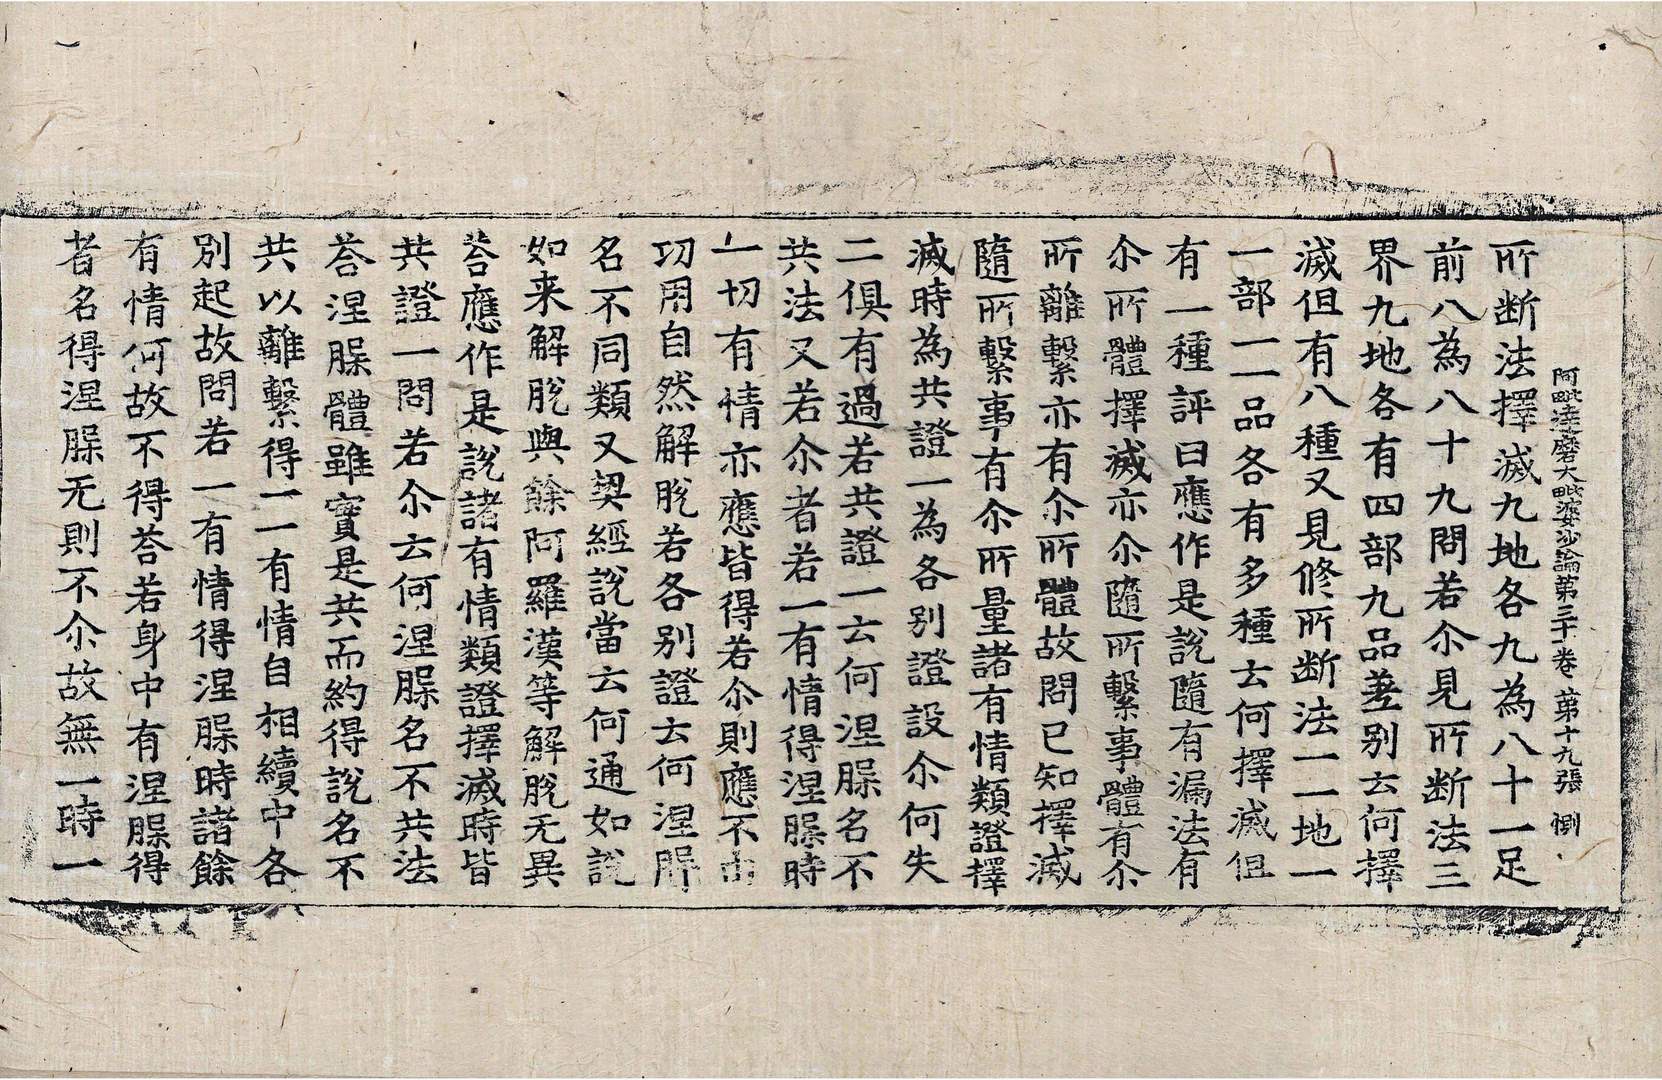 阿毗達磨大毗婆沙論第三十一卷 第十九張 惻
所斷法擇滅九地各九為八十一足
前八為八十九問若尒見所斷法三
界九地各有四部九品差別云何擇
滅但有八種又見修所斷法一一地一
一部一一品各有多種云何擇滅但
有一種評曰應作是說隨有漏法有
尒所體擇滅亦尒隨所繫事體有尒
所離繫亦有尒所體故問已知擇滅
隨所繫事有尒所量諸有情類證擇
滅時為共證一為各別證設尒何失
二俱有過若共證一云何涅槃名不
共法又若尒者若一有情得涅槃時
一切有情亦應皆得若尒則應不由
功用自然解脫若各別證云何涅槃
名不同類又契經說當云何通如說
如来解脫與餘阿羅漢等解脫无異
荅應作是說諸有情類證擇滅時皆
共證一問若尒云何涅槃名不共法
荅涅槃體雖實是共而約得說名不
共以離繫得一一有情自相續中各
別起故問若一有情得涅槃時諸餘
有情何故不得荅若身中有涅槃得
者名得涅槃无則不尒故無一時一